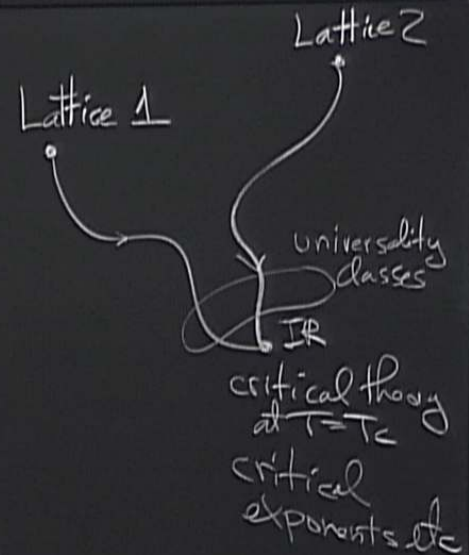 Lattice 2
Lattice 1
universality
classes
IR
critical theory
at T=Tc
critical
exponents etc